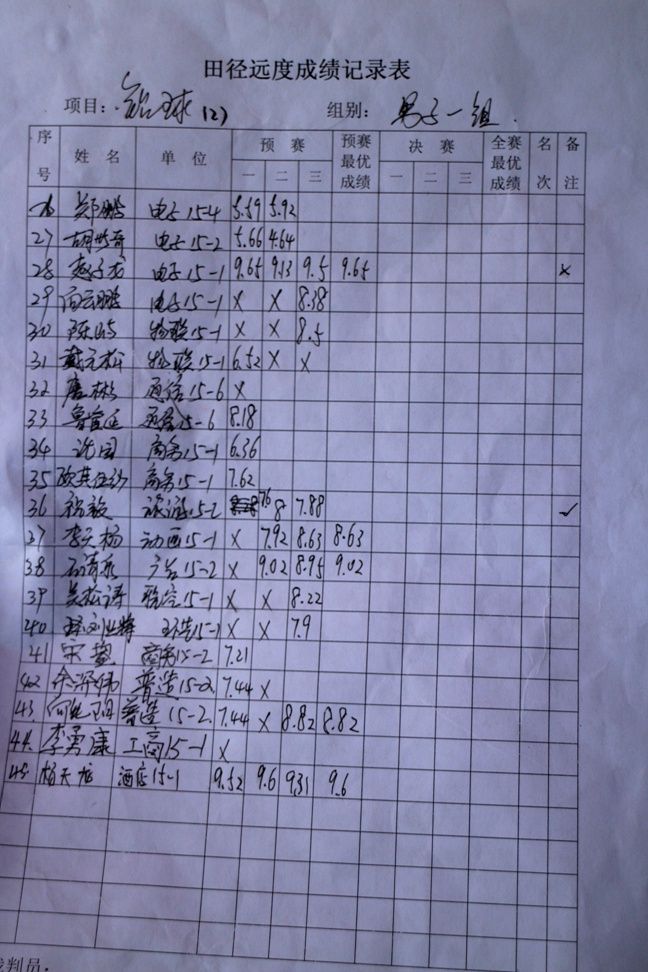 田径远度成绩记录表
项目: 铅球(2) 组别: 男子一组.
序号 姓名 单位 预赛 预赛最优成绩 决赛 全赛最优成绩 名次 备注
一 二 三 一 二 三
郑鹏 电子15-4 5.59 5.92
27 电子15-2 5.66 4.64
28 赵子龙 电子15-1 9.65 9.13 9.5 9.65 x
29 向云鹏 电子15-1 x x 8.38
30 物联15-1 x x 8.5
31 戴元松 物联15-1 6.52 x x
32 唐彬 通信15-6 x
33 15-6 8.18
34 沈园 商务15-1 6.36
35 商务15-1 7.62
36 旅游15-2 8 7.88 ✓
37 李天杨 动画15-1 x 7.92 8.63 8.63
38 广告15-2 x 9.02 8.95 9.02
39 吴松涛 15-1 x x 8.22
40 15-1 x x 7.9
41 商务15-2 7.21
42 普造15-2 7.44 x
43. 普造15-2. 7.44 x 8.82 8.82
44. 李勇康 工商15-1 x
45. 杨天龙 酒店15-1 9.52 9.6 9.31 9.6
裁判员: